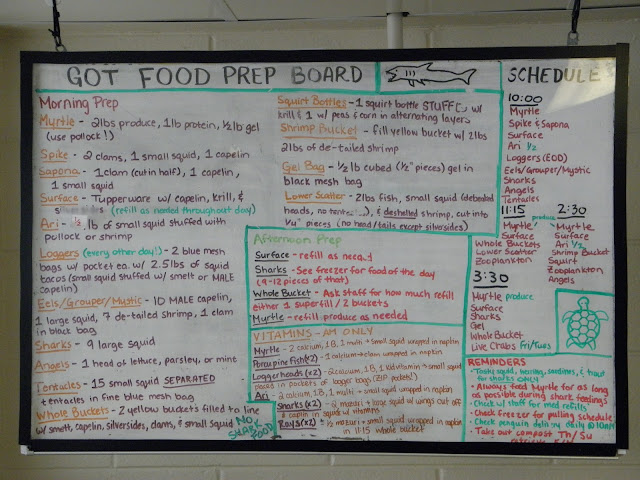 GOT FOOD PREP BOARD
Morning Prep
Myrtle - 2lbs produce, 1lb protein, ½lb gel
(use pollock!)
Spike - 2 clams, 1 small squid, 1 capelin
Sapona - 1 clam (cut in half), 1 capelin,
1 small squid
Surface - Tupperware w/ capelin, krill, &
(refill as needed throughout day)
Ari - lb of small squid stuffed with
pollock or shrimp
Loggers (every other day!) - 2 blue mesh
bags w/ pocket ea. w/ 2.5lbs of squid
tacos (small squid stuffed w/ smelt or MALE
capelin)
Eels/Grouper/Mystic - 10 MALE capelin,
1 large squid, 7 de-tailed shrimp, 1 clam
in black bag
Sharks - 9 large squid
Angels - 1 head of lettuce, parsley, or mint
Tentacles - 15 small squid SEPARATED
tentacles in fine blue mesh bag
Whole Buckets - 2 yellow buckets filled to line
w/ smelt, capelin, silversides, clams, & small squid
NO SHARK FOOD
Squirt Bottles - 1 squirt bottle STUFFED w/
krill & 1 w/ peas & corn in alternating layers
Shrimp Bucket - fill yellow bucket w/ 2lbs
2lbs of de-tailed shrimp
Gel Bag - ½ lb cubed (½" pieces) gel in
black mesh bag
Lower Scatter - 2lbs fish, small squid (debeaked
heads, no), & deshelled shrimp, cut into
¼" pieces (no head/tails except silversides)
Afternoon Prep
Surface - refill as need
Sharks - See freezer for food of the day
(9-12 pieces of that)
Whole Bucket - Ask staff for how much refill
either 1 superfill / 2 buckets
Myrtle - refill produce as needed
VITAMINS - AM ONLY
Myrtle - 2 calcium, 1B, 1 multi → small squid wrapped in napkin
Porcupine Fish (x2) - 1 calcium → clam wrapped in napkin
Loggerheads (x2) - 2 calcium, 1B, 1 small squid wrapped in napkin
placed in pockets of logger bags (ZIP pockets!)
Ari - 2 calcium, 1B, 1 multi → small squid wrapped in napkin
Sharks (x2) - 2 mazuri → large squid w/ wings cut off
& caplin in squid w/ vitamins
Rays (x2) - ½ mazuri → small squid wrapped in napkin
in 11:15 whole bucket
SCHEDULE
10:00
Myrtle
Spike & Sapona
Surface
Ari ½
Loggers (EOD)
Eels/Grouper/Mystic
Sharks
Angels
Tentacles
11:15
Myrtle produce
Surface
Whole Buckets
Lower Scatter
Zooplankton
2:30
Myrtle
Surface
Ari ½
Shrimp Bucket
Squirt
Zooplankton
Angels
3:30
Myrtle produce
Surface
Sharks
Gel
Whole Bucket
Live Crabs Fri/Tues
REMINDERS
squid, herring, sardines, & trout
for sharks ONLY
Always feed Myrtle for as long
as possible during shark feedings
Check w/ staff for med refills
Check freezer for pulling schedule
Check penguin delivery daily @ 10AM
Take out compost Th/Su